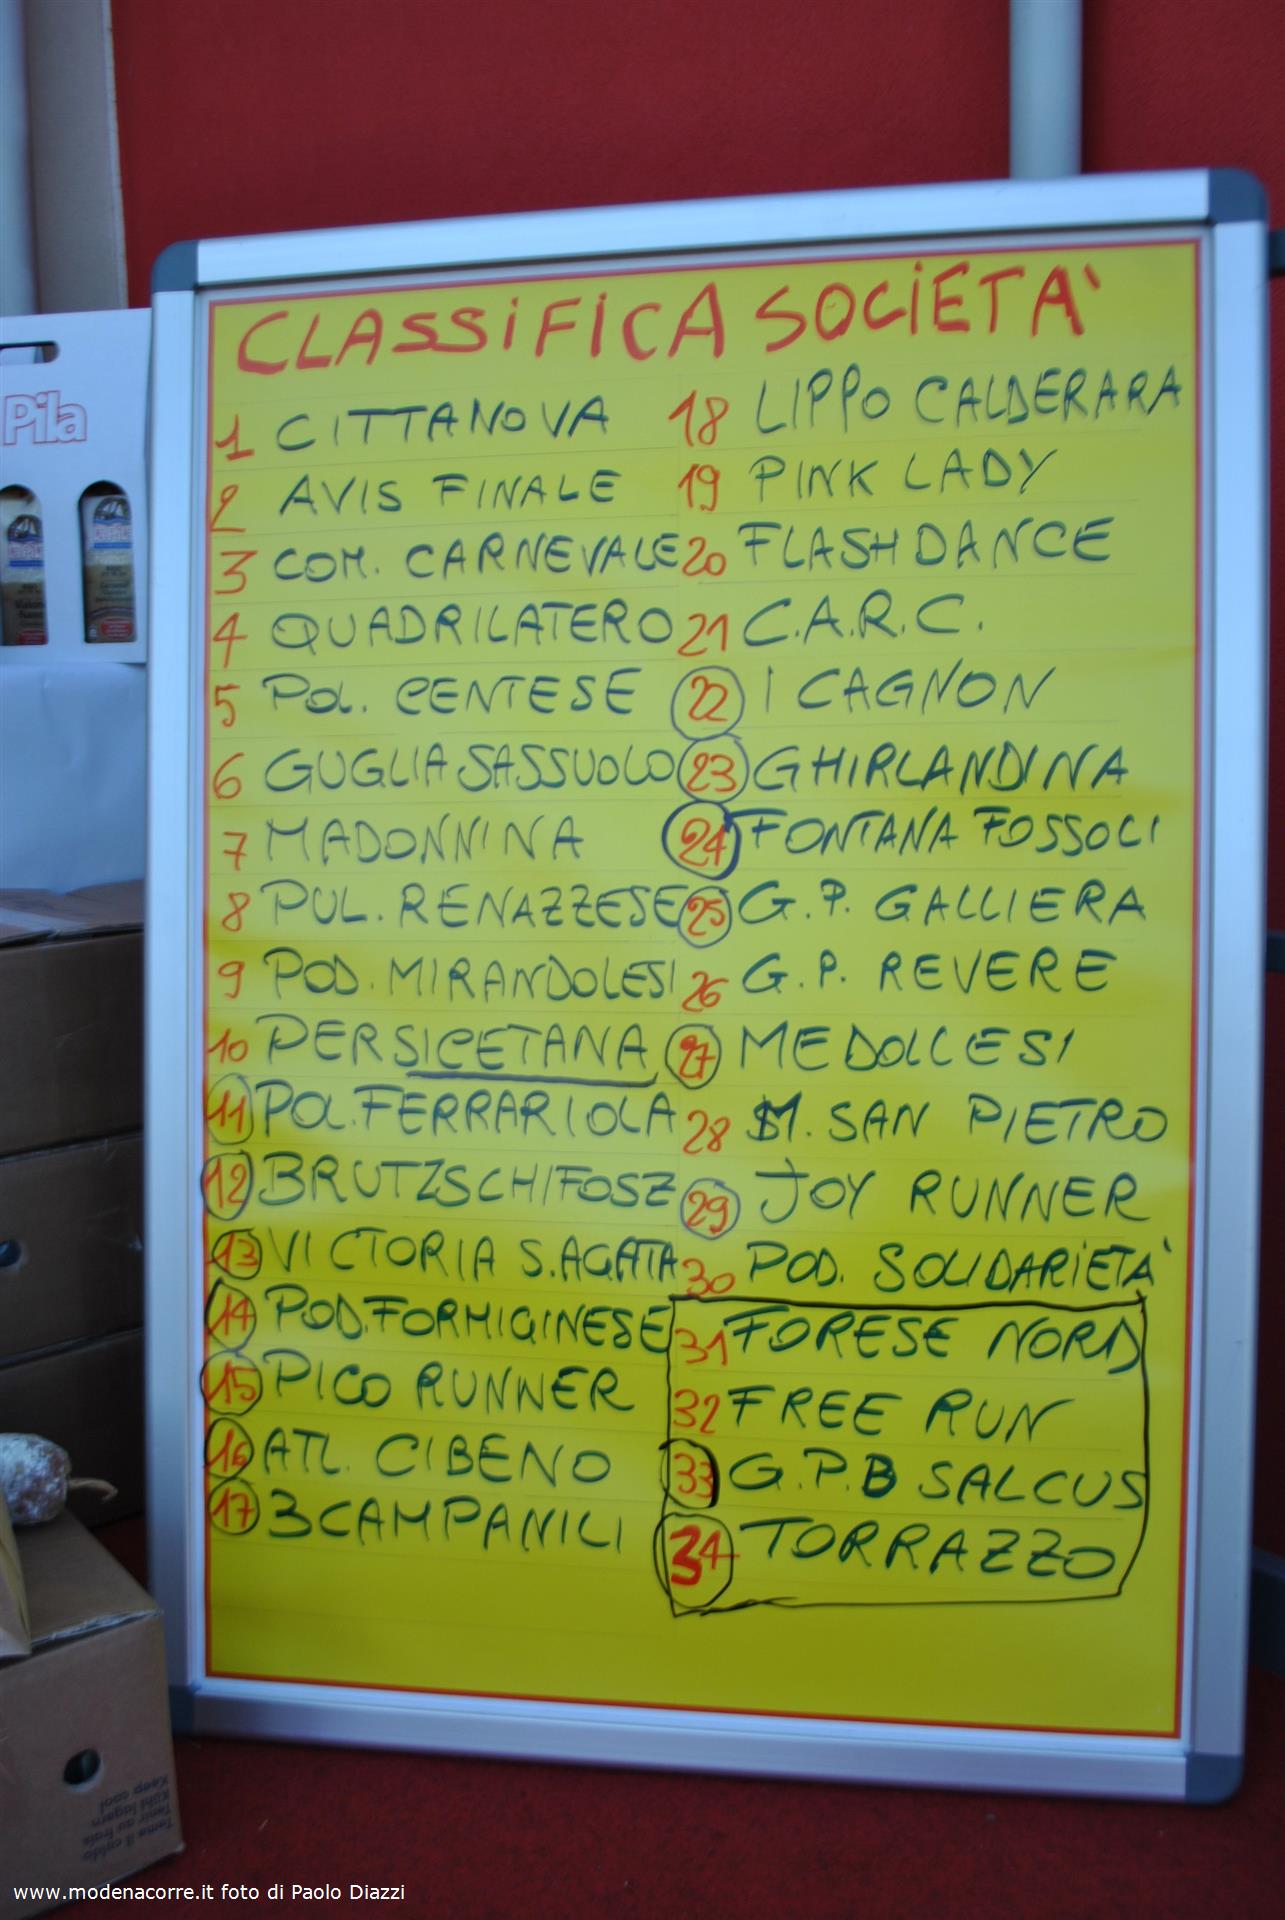 CLASSIFICA SOCIETA'
1 CITTANOVA
2 AVIS FINALE
3 COM. CARNEVALE
4 QUADRILATERO
5 POL. CENTESE
6 GUGLIA SASSUOLO
7 MADONNINA
8 PUL. RENAZZESE
9 POD. MIRANDOLESI
10 PERSICETANA
11 POL. FERRARIOLA
12 BRUTZSCHIFOSZ
13 VICTORIA S. AGATA
14 POD. FORMIGINESE
15 PICO RUNNER
16 ATL. CIBENO
17 3 CAMPANILI
18 LIPPO CALDERARA
19 PINK LADY
20 FLASHDANCE
21 C.A.R.C.
22 I CAGNON
23 GHIRLANDINA
24 FONTANA FOSSOLI
25 G.P. GALLIERA
26 G.P. REVERE
27 MEDOLLESI
28 M. SAN PIETRO
29 JOY RUNNER
30 POD. SOLIDARIETA'
31 FORESE NORD
32 FREE RUN
33 G.P.B SALCUS
34 TORRAZZO
Pila
Teme il caldo
Tenir au frais
Kühl lagern
Keep cool
www.modenacorre.it foto di Paolo Diazzi